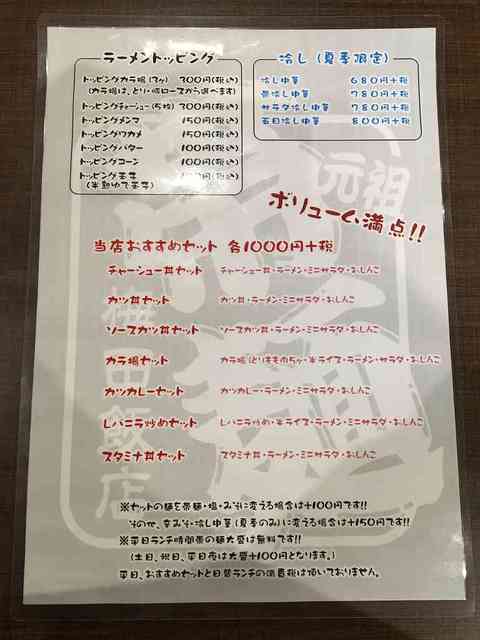 ラーメントッピング
トッピングカラ揚(3ヶ) 300円(税込)
(カラ揚は、とり・豚ロースから選べます)
トッピングチャーシュー(5枚) 300円(税込)
トッピングメンマ 150円(税込)
トッピングワカメ 150円(税込)
トッピングバター 100円(税込)
トッピングコーン 100円(税込)
トッピング玉子 円(税込)
(半熟ゆで玉子)
冷し(夏季限定)
冷し中華 680円+税
茶冷し中華 780円+税
サラダ冷し中華 780円+税
五目冷し中華 800円+税
元祖
ボリューム満点!!
当店おすすめセット 各1000円+税
チャーシュー丼セット チャーシュー丼・ラーメン・ミニサラダ・おしんこ
カツ丼セット カツ丼・ラーメン・ミニサラダ・おしんこ
ソースカツ丼セット ソースカツ丼・ラーメン・ミニサラダ・おしんこ
カラ揚セット カラ揚(とりもも肉5ヶ・半ライス・ラーメン・サラダ・おしんこ
カツカレーセット カツカレー・ラーメン・ミニサラダ・おしんこ
レバニラ炒めセット レバニラ炒め・半ライス・ラーメン・ミニサラダ・おしんこ
スタミナ丼セット スタミナ丼・ラーメン・ミニサラダ・おしんこ
梅田飯店
※セットの麺を茶麺・塩・みそに変える場合は+100円です!!
その他、辛みそ・冷し中華(夏季のみ)に変える場合は+150円です!!
※平日ランチ時間帯の麺大盛は無料です!!
(土日、祝日、平日夜は大盛+100円となります。)
平日、おすすめセットと日替ランチの消費税は頂いておりません。